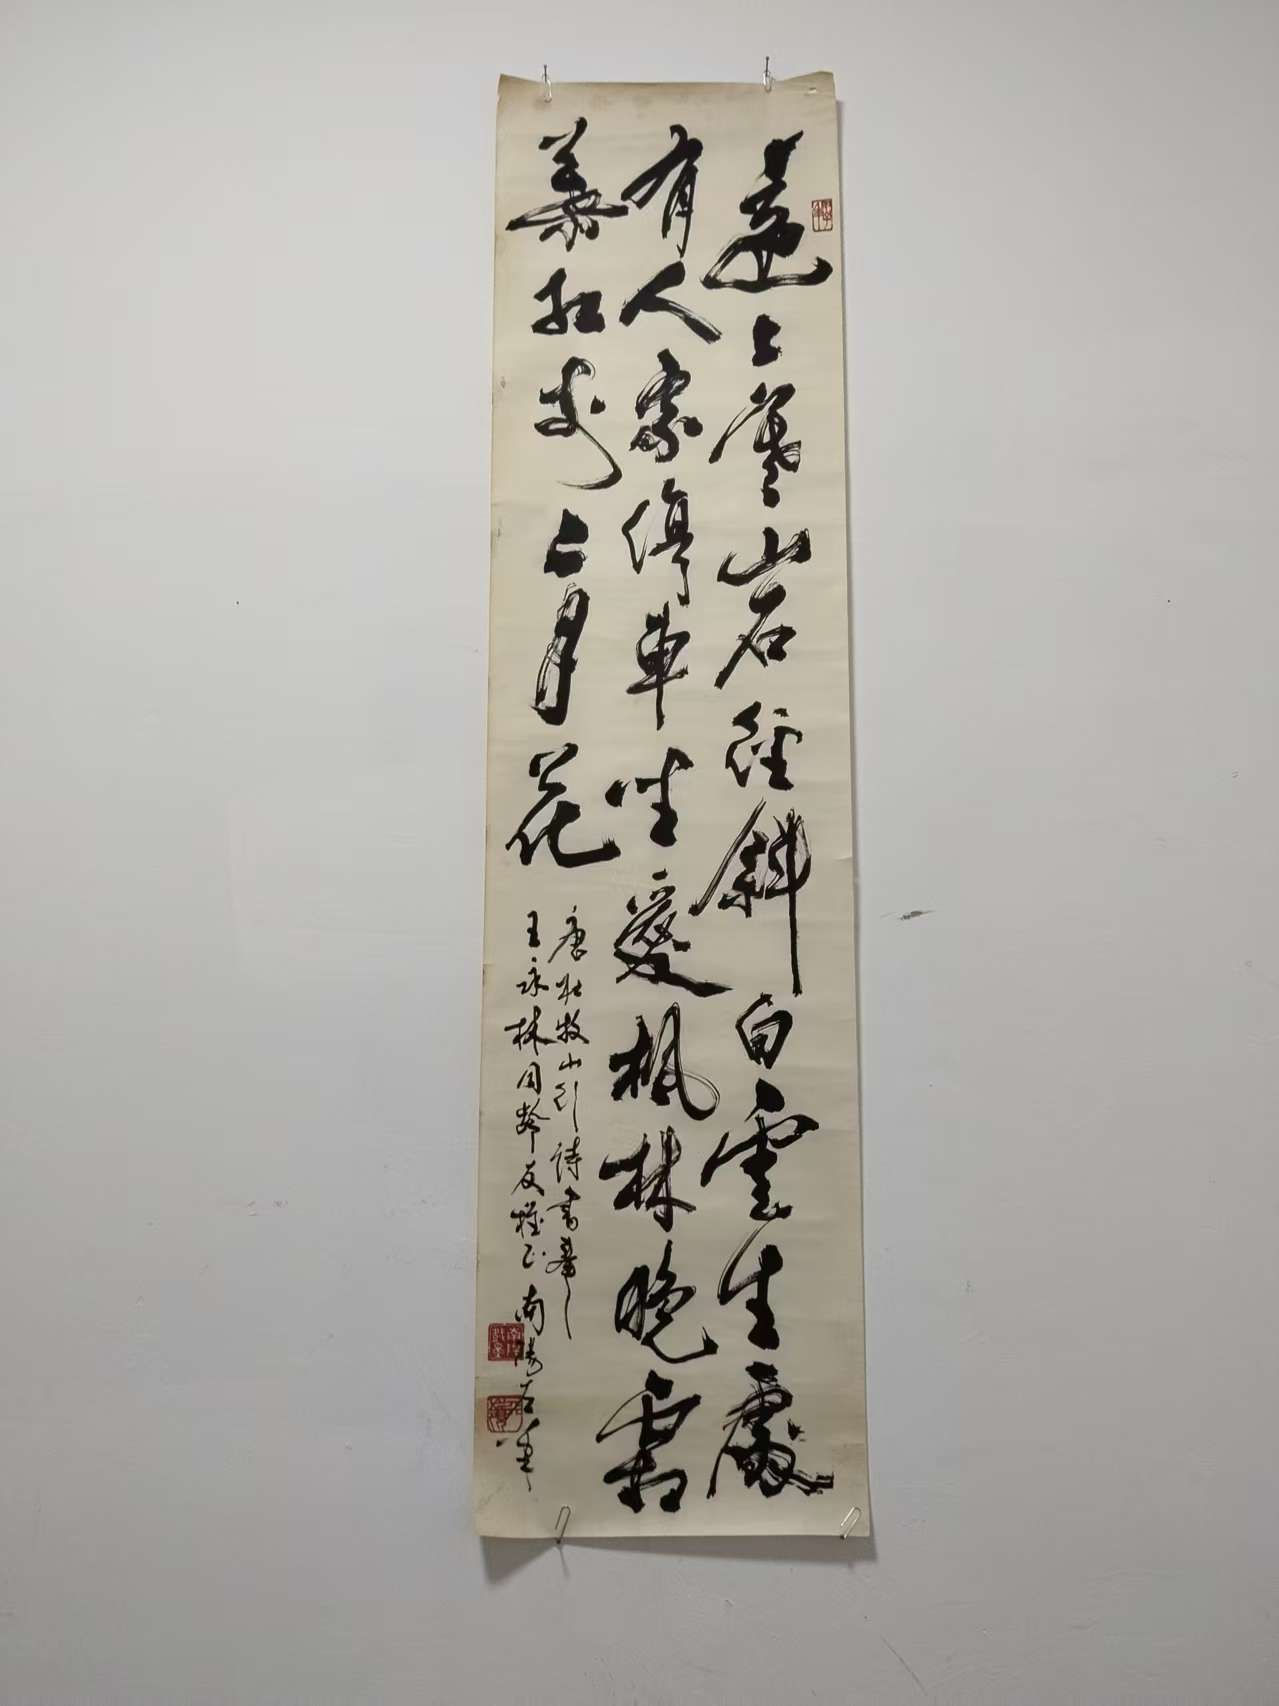 遠上寒山石徑斜白雲生處
有人家停車坐愛楓林晚霜
葉紅於二月花
唐杜牧山行詩書奉
王永林同齡友雅正 南勝左筆